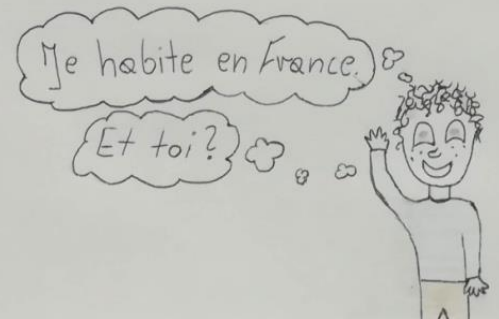 Je habite en France.
Et toi?